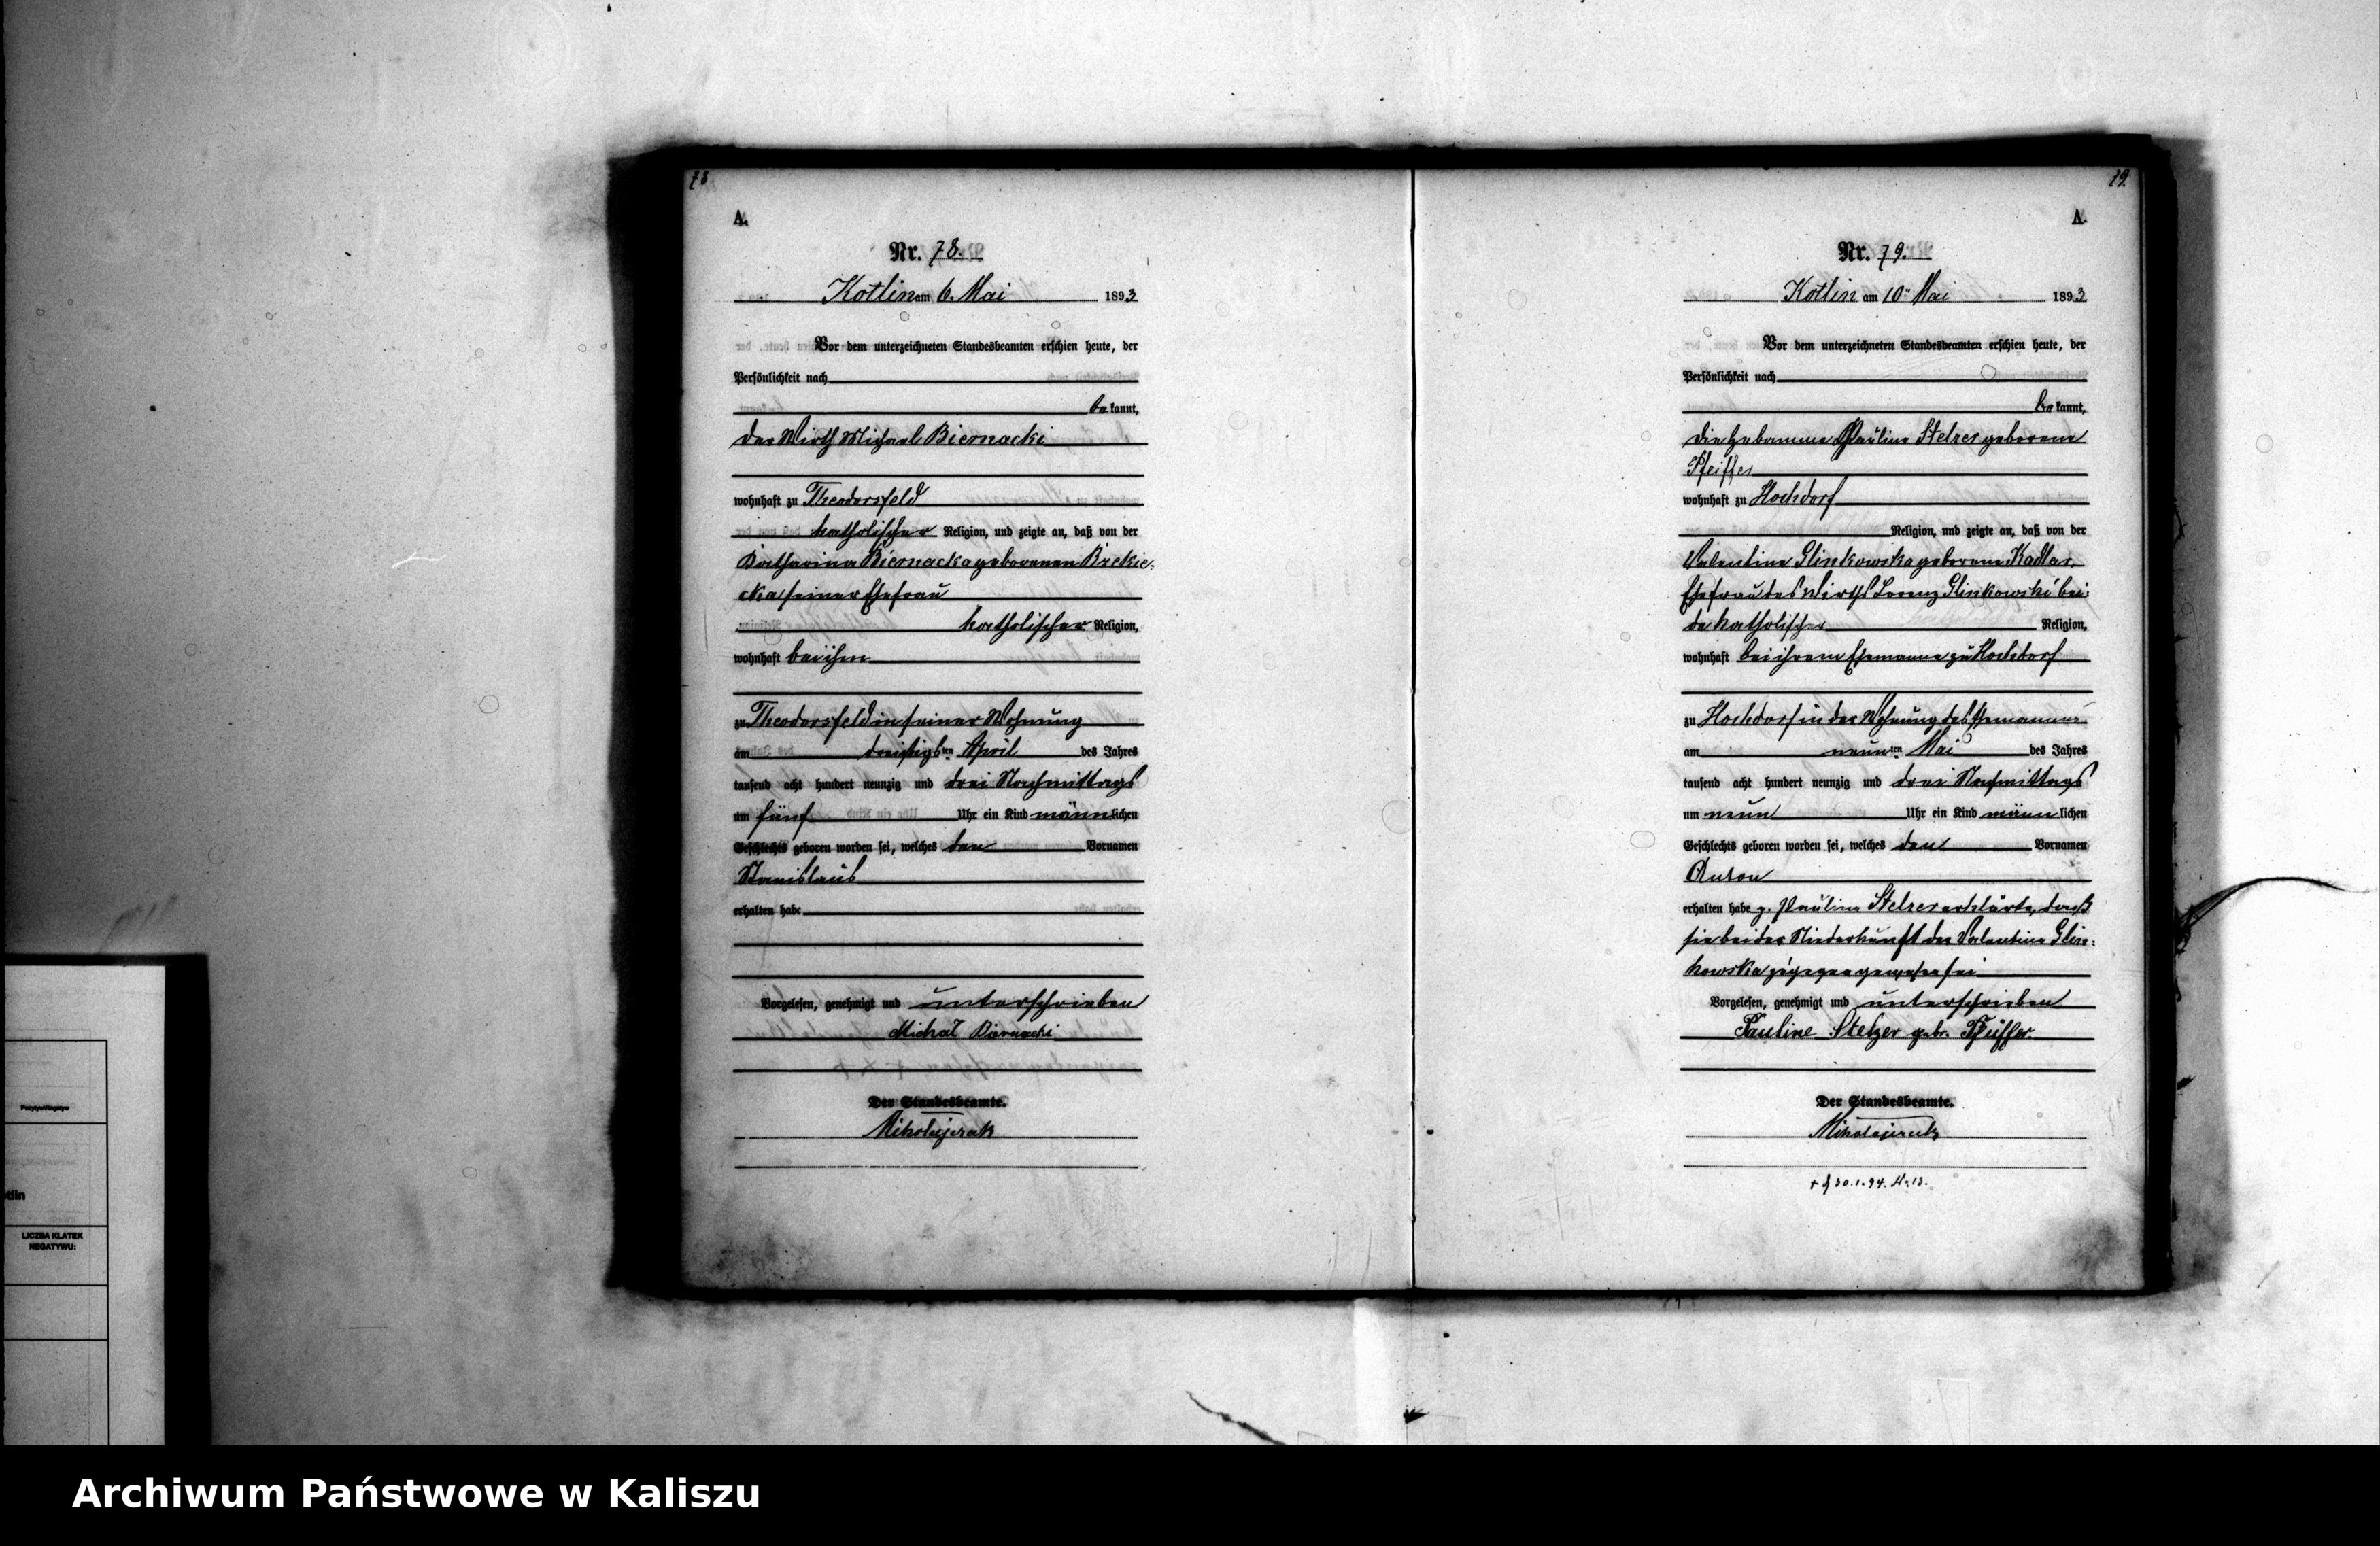 78
A.
Nr. 78.
Kotlin am 6. Mai 1893
Vor dem unterzeichneten Standesbeamten erschien heute, der
Persönlichkeit nach
be kannt,
der Wirth Michael Biernacki
wohnhaft zu Theodorsfeld
katholischer Religion, und zeigte an, daß von der
Katharina Biernacka geborenen Brekie-
cka seiner Ehefrau
katholischer Religion,
wohnhaft bei ihm
zu Theodorsfeld in seiner Wohnung
am dreißigsten April des Jahres
tausend acht hundert neunzig und drei Nachmittags
um fünf Uhr ein Kind männlichen
Geschlechts geboren worden sei, welches den Vornamen
Stanislaus
erhalten habe
Vorgelesen, genehmigt und unterschrieben
Michał Biernacki
Der Standesbeamte.
Mikolajczak
79.
A.
Nr. 79.
Kotlin am 10ten Mai 1893
Vor dem unterzeichneten Standesbeamten erschien heute, der
Persönlichkeit nach
be kannt,
die Hebamme Pauline Stelzer geborene
Pfeiffer
wohnhaft zu Hochdorf
Religion, und zeigte an, daß von der
Valentine Glinkowska geborene Kadler,
Ehefrau des Wirths Lorenz Glinkowski bei-
de katholischer Religion,
wohnhaft bei ihrem Ehemanne zu Hochdorf
zu Hochdorf in der Wohnung des Ehemannes
am neunten Mai des Jahres
tausend acht hundert neunzig und drei Nachmittags
um neun Uhr ein Kind männlichen
Geschlechts geboren worden sei, welches den Vornamen
Anton
erhalten habe p. Pauline Stelzer erklärte, daß
sie bei der Niederkunft der Valentine Glin-
kowska zugegen gewesen sei
Vorgelesen, genehmigt und unterschrieben
Pauline Stelzer gebr. Pfeiffer.
Der Standesbeamte.
Mikolajczak
30.1.94. Nr. 13.
tlin
LICZBA KLATEK
NEGATYWU:
Archiwum Państwowe w Kaliszu